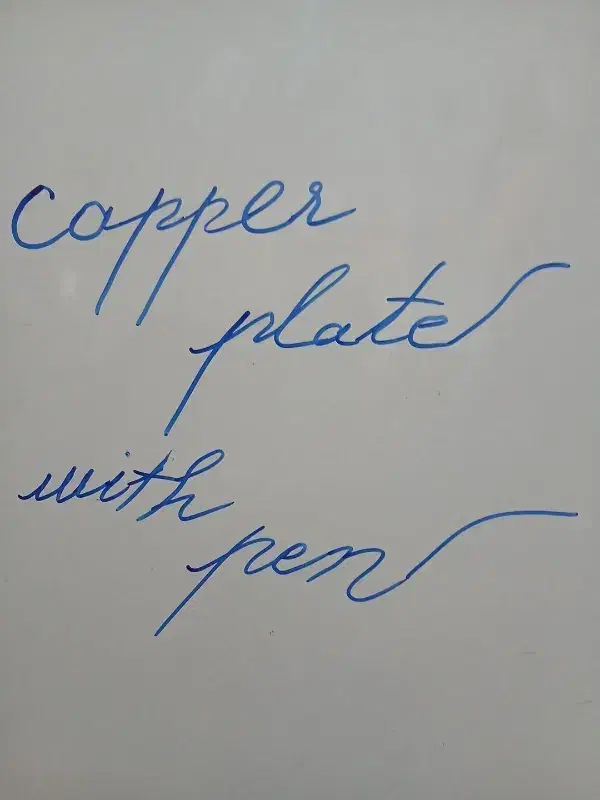 copper
plate
with
pen